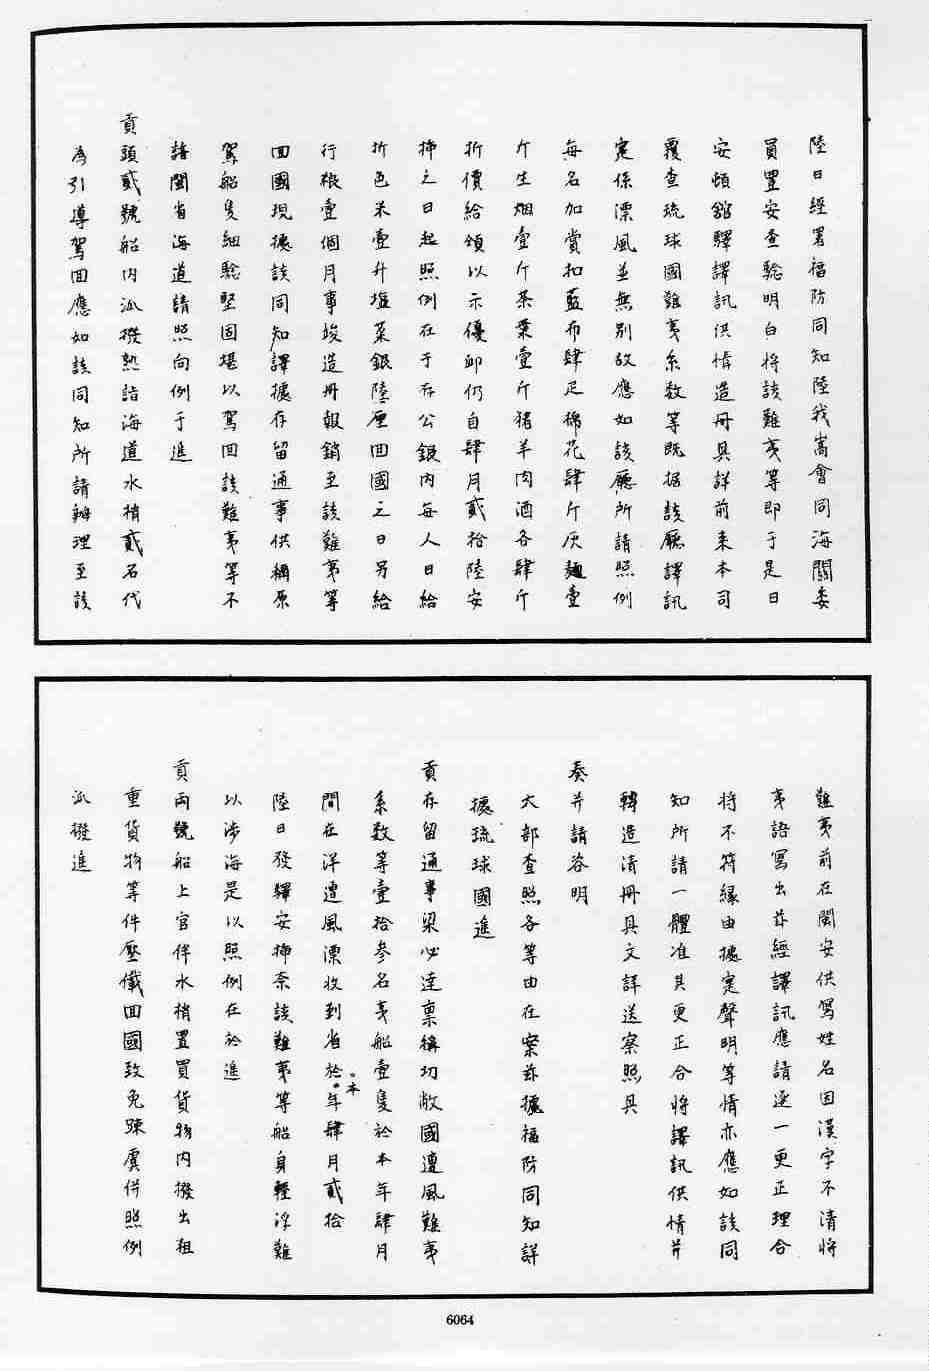 陸日經署福防同知陸我嵩會同海關委
員置安查驗明白將該難夷等即于是日
安頓舘驛譯訊供情造冊具詳前來本司
覆查琉球國難夷系数等既据該廳譯訊
寔係漂風並無别故應如該廳所請照例
每名加賞扣藍布肆疋棉花肆斤灰麵壹
斤生烟壹斤茶葉壹斤猪羊肉酒各肆斤
折價給領以示優卹仍自肆月貳拾陸安
揷之日起照例在于存公銀内每人日給
折色米壹升塩菜銀陸厘回國之日另給
行粮壹個月事竣造冊報銷至該難夷等
回國現據該同知譯據存留通事供稱原
駕船隻細驗堅固堪以駕回該難夷等不
諳閩省海道請照向例于進
貢頭貳號船内派撥熟諳海道水梢貳名代
為引導駕回應如該同知所請辦理至該
難夷前在閩安供寫姓名因漢字不清將
夷語寫出茲經譯訊應請逐一更正理合
將不符縁由據寔聲明等情亦應如該同
知所請一體准其更正合將譯訊供情并
轉造清冊具文詳送察照具
奏并請咨明
大部查照各等由在案茲據福防同知詳
據琉球國進
貢存留通事梁必達稟稱切敝國遭風難夷
系数等壹拾參名夷船壹隻於本年肆月
間在洋遭風漂收到省於本年肆月貳拾
陸日發驛安揷奈該難夷等船身輕浮難
以涉海是以照例在於進
貢兩號船上官伴水梢置買貨物内撥出租
重貨物等件壓儎回國致免踈虞併照例
派撥進
6064